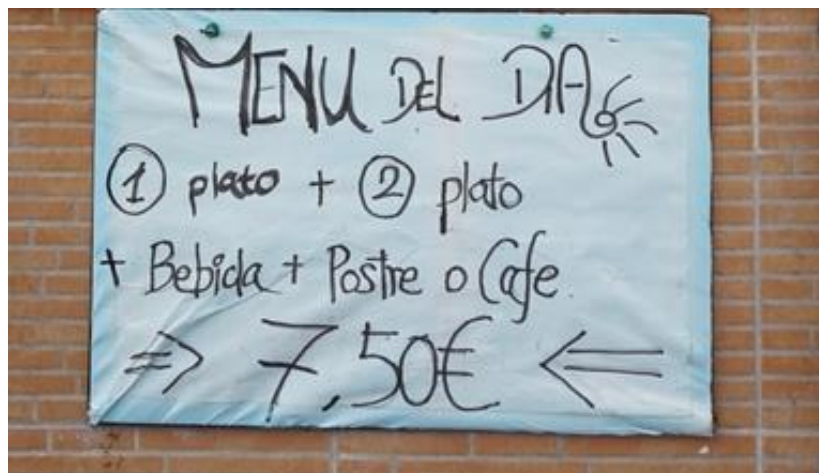 MENU DEL DIA
1 plato + 2 plato
+ Bebida + Postre o Cafe
=> 7,50€ <=